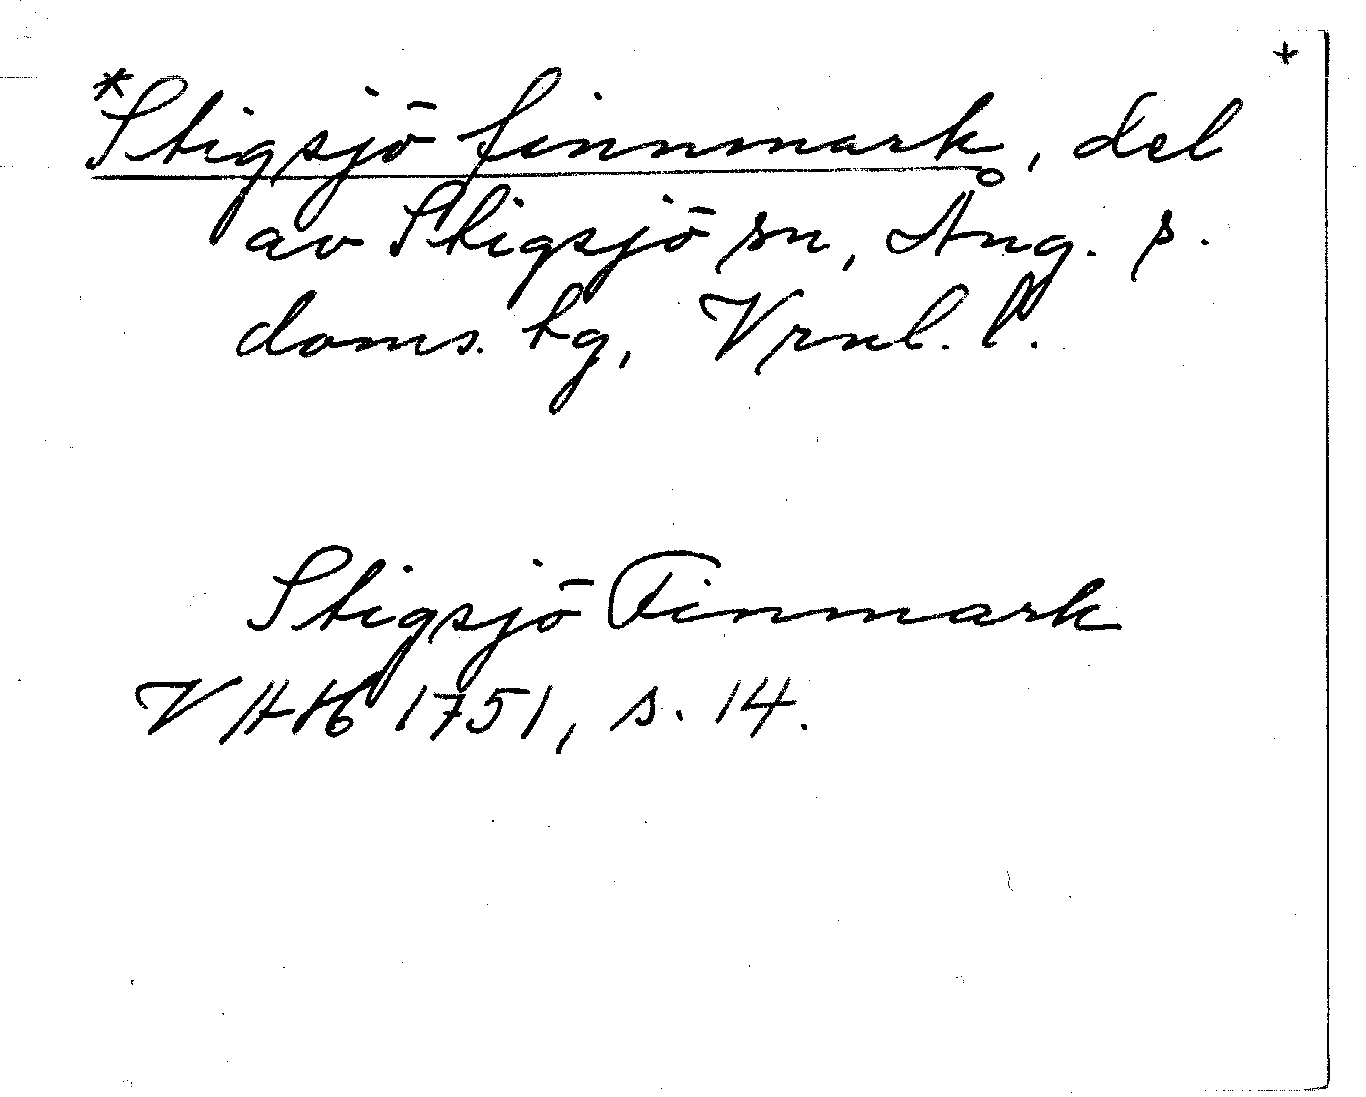 +
*Stigsjö finnmark, del
av Stigsjö sn, Ång. s.
doms. tg, Vrnl. l.
Stigsjö Finmark
VHH 1751, s. 14.